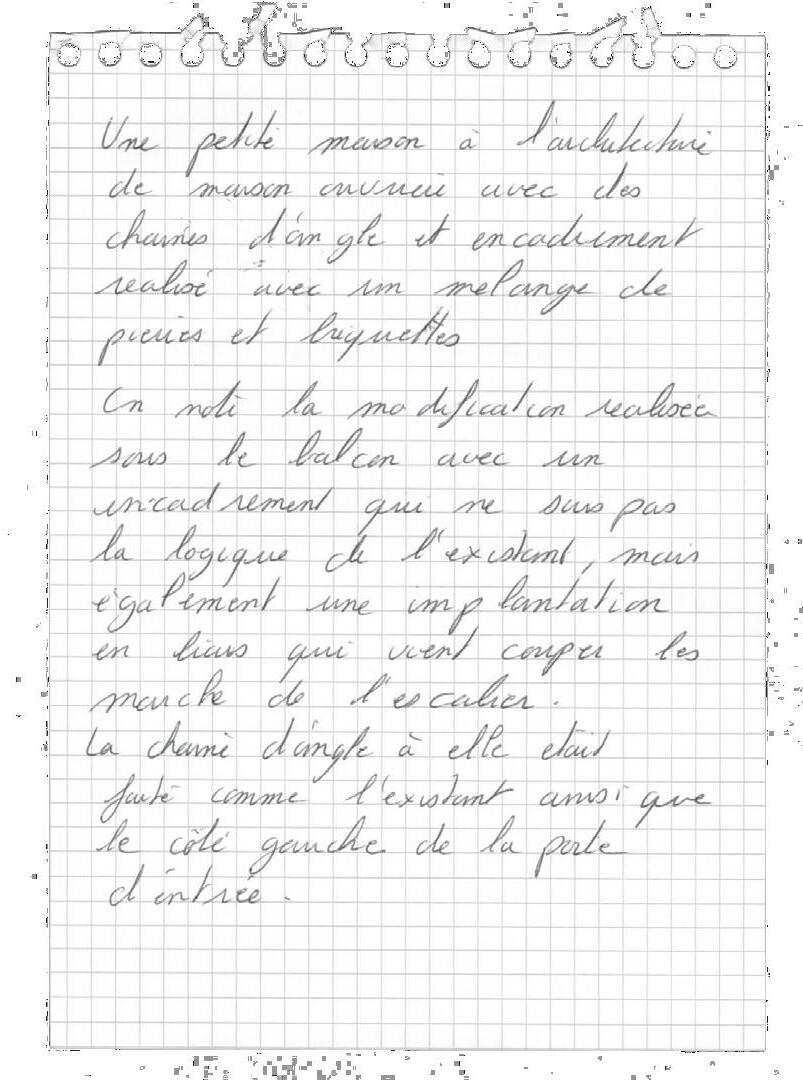 Une petite maison à l'architecture
de maison ouvrière avec des
chaines d'angle et encadrement
realisé avec un melange de
pierres et briquettes
On note la modification realisée
sous le balcon avec un
encadrement qui ne suis pas
la logique de l'existant, mais
également une implantation
en biais qui vient couper les
marche de l'escalier.
La chaine d'angle à elle etait
faite comme l'existant ainsi que
le côté gauche de la porte
d'entrée.